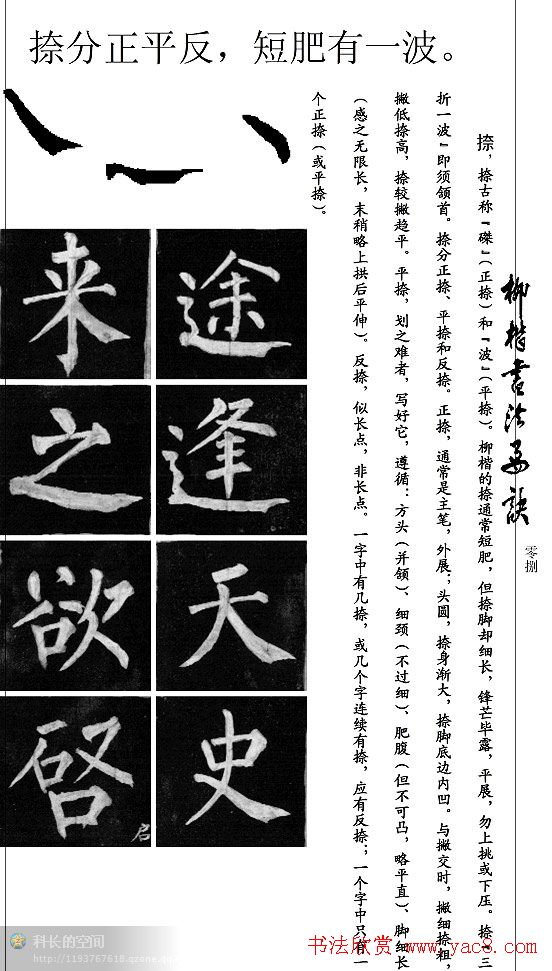 捺分正平反，短肥有一波。
柳楷书法要诀
零捌
捺，捺古称“磔”（正捺）和“波”（平捺）。柳楷的捺通常短肥，但捺脚却细长，锋芒毕露，平展，勿上挑或下压。捺“三
折一波”即须领首。捺分正捺、平捺和反捺。正捺，通常是主笔，外展；头圆，捺身渐大，捺脚底边内凹。与撇交时，撇细捺粗，
撇低捺高，捺较撇趋平。平捺，划之难者，写好它，遵循：方头（并颔）、细颈（不过细）、肥腹（但不可凸，略平直）、脚细长
（感之无限长，末稍略上拱后平伸）。反捺，似长点，非长点。一字中有几捺，或几个字连续有捺，应有反捺；一个字中只有一
个正捺（或平捺）。
途
逢
天
史
来
之
欲
啓
启
科长的空间
http://1193767618.qzone.qq
书法欣赏 www.yac8.com